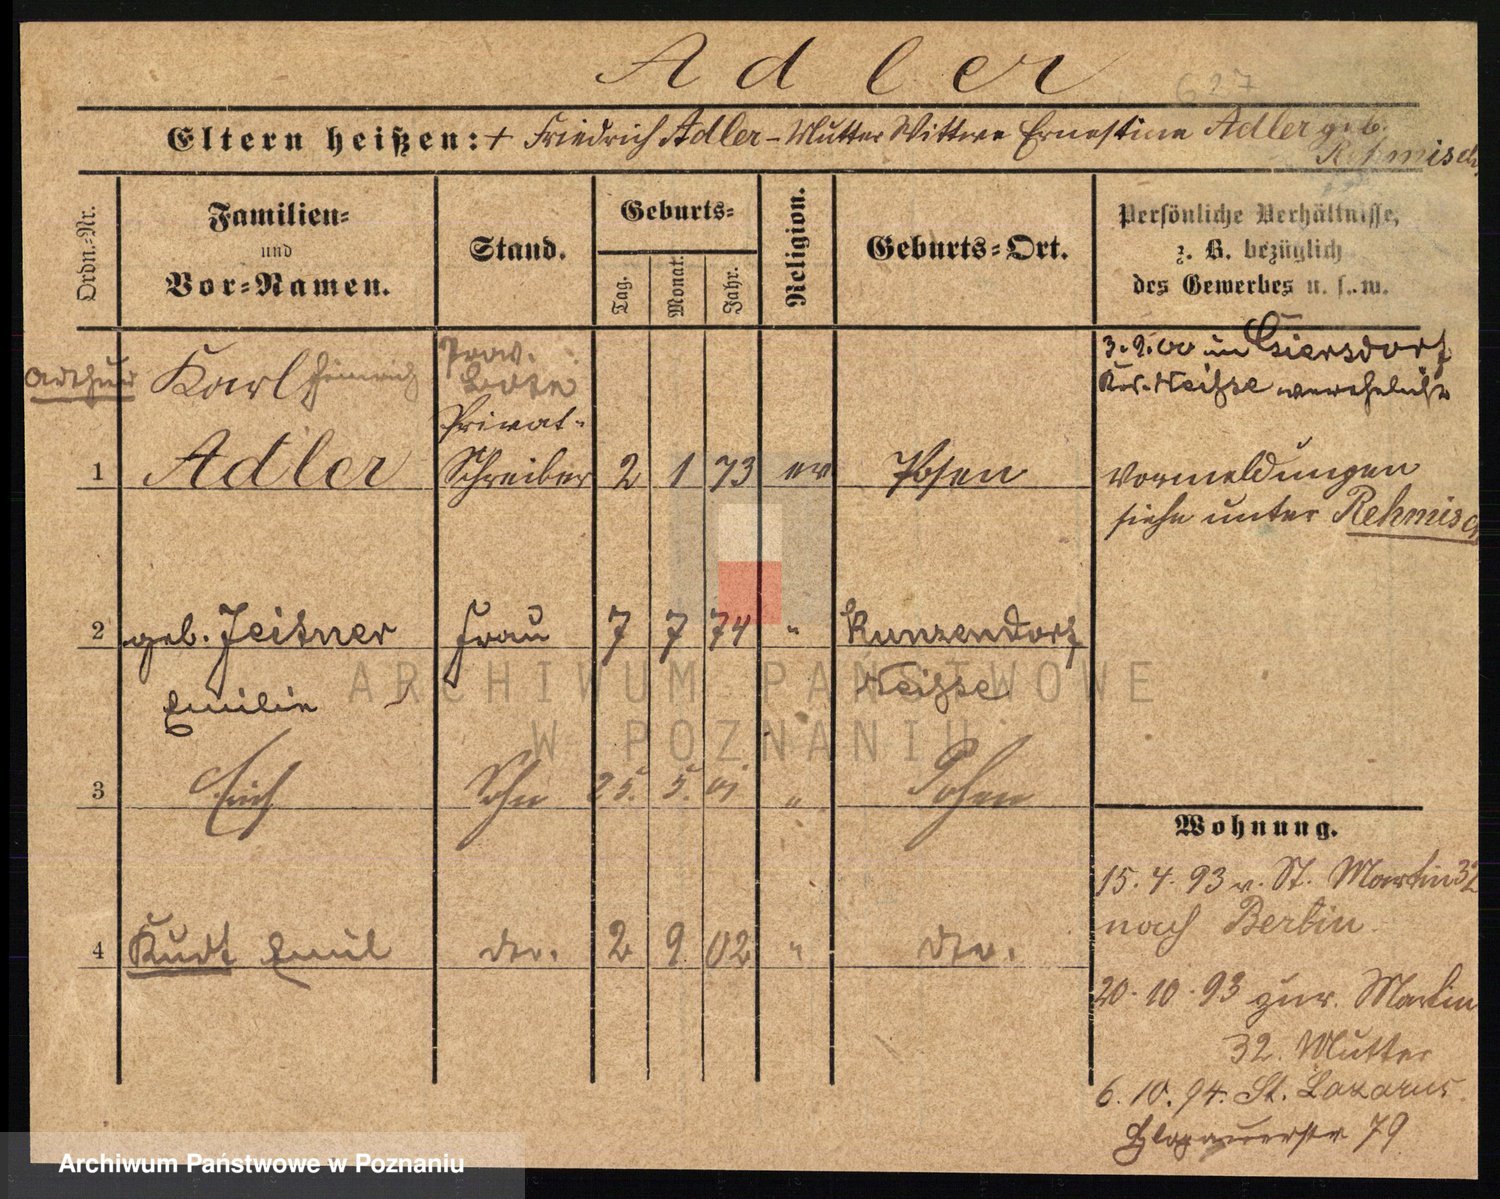 Adler
627
Eltern heißen: + Friedrich Adler – Mutter Wittwe Ernestine Adler geb.
Rehmisch
Ordn.-Nr.
Familien-
und
Vor-Namen.
Stand.
Geburts-
Tag.
Monat.
Jahr.
Religion.
Geburts-Ort.
Persönliche Verhältnisse,
z. B. bezüglich
des Gewerbes u. s. w.
Arthur Karl Heinrich
Adler
1
Privat-
Schreiber
2 1 73 ev Posen
3.9.00 in Giersdorf
Kr. Neisse verehelicht
Vormeldungen
siehe unter Rehmisch
2 geb. Jeisner Frau 7 7 74 " Kunzendorf
Emilie Neisse
3 Erich Sohn 25. 5. 01 " Posen
4 Kurt Emil do. 2 9 02 " do.
Wohnung.
15.4.93 v. St. Martin 32
nach Berlin.
20.10.93 zur. Martin
32. Mutter
6.10.94. St. Lazarus.
Glogauerstr 79
ARCHIWUM PAŃSTWOWE
W POZNANIU
Archiwum Państwowe w Poznaniu